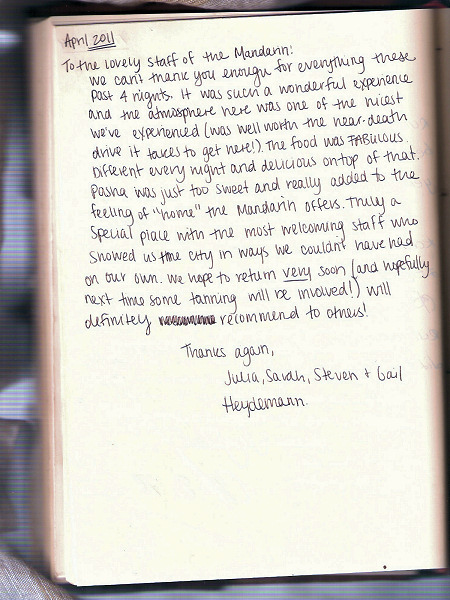 April 2011
To the lovely staff of the Mandarin:
we can't thank you enough for everything these
past 4 nights. It was such a wonderful experience
and the atmosphere here was one of the nicest
we've experienced (was well worth the near-death
drive it takes to get here!). The food was FABulous.
Different every night and delicious on top of that.
Pasha was just too sweet and really added to the
feeling of "home" the Mandarin offers. Truly a
special place with the most welcoming staff who
showed us the city in ways we couldn't have had
on our own. We hope to return very soon (and hopefully
next time some tanning will be involved!) will
definitely recommend to others!
Thanks again,
Julia, Sarah, Steven + Gail
Heydemann.